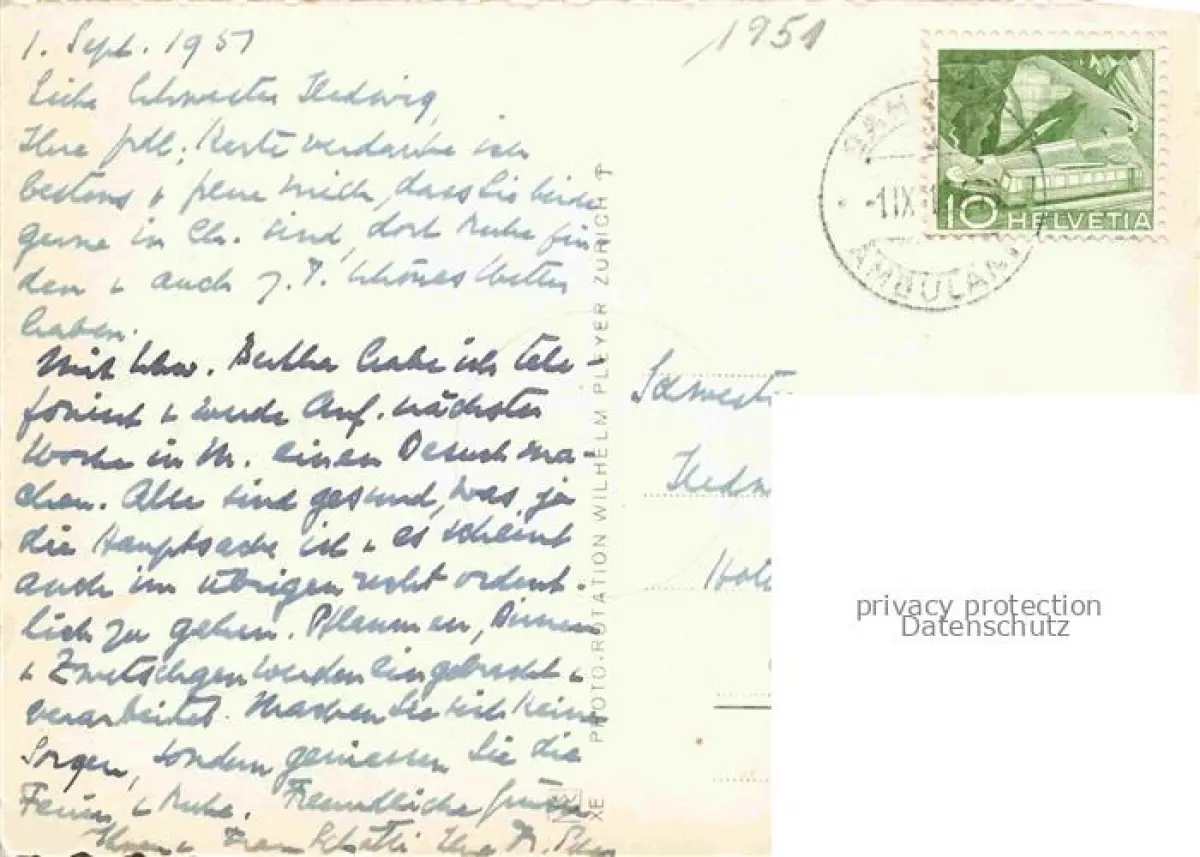 1. Sept. 1951
Liebe Schwester Hedwig,
Ihre frdl. Karte verdanke ich
bestens & freue mich, dass Sie beide
gerne in Ch. sind, dort Ruhe fin
den & auch z. T. schönes Wetter
haben.
Mit Schw. Bertha habe ich tele-
foniert & werde Anf. nächster
Woche in M. einen Besuch ma-
chen. Alle sind gesund, was ja
die Hauptsache ist & es scheint
auch im übrigen recht ordent-
lich zu gehen. Pflaumen, Birnen
& Zwetschgen werden eingebracht &
verarbeitet. Machen Sie sich keine
Sorgen, sondern geniessen Sie die
Ferien & Ruhe. Freundliche Grüsse
Ihnen & Frau Ihr
1951
BAH
-1IX
AMBULANT
10 HELVETIA
XE PHOTO-ROTATION WILHELM PLEYER ZÜRICH
Schweste
Hedw
privacy protection
Datenschutz